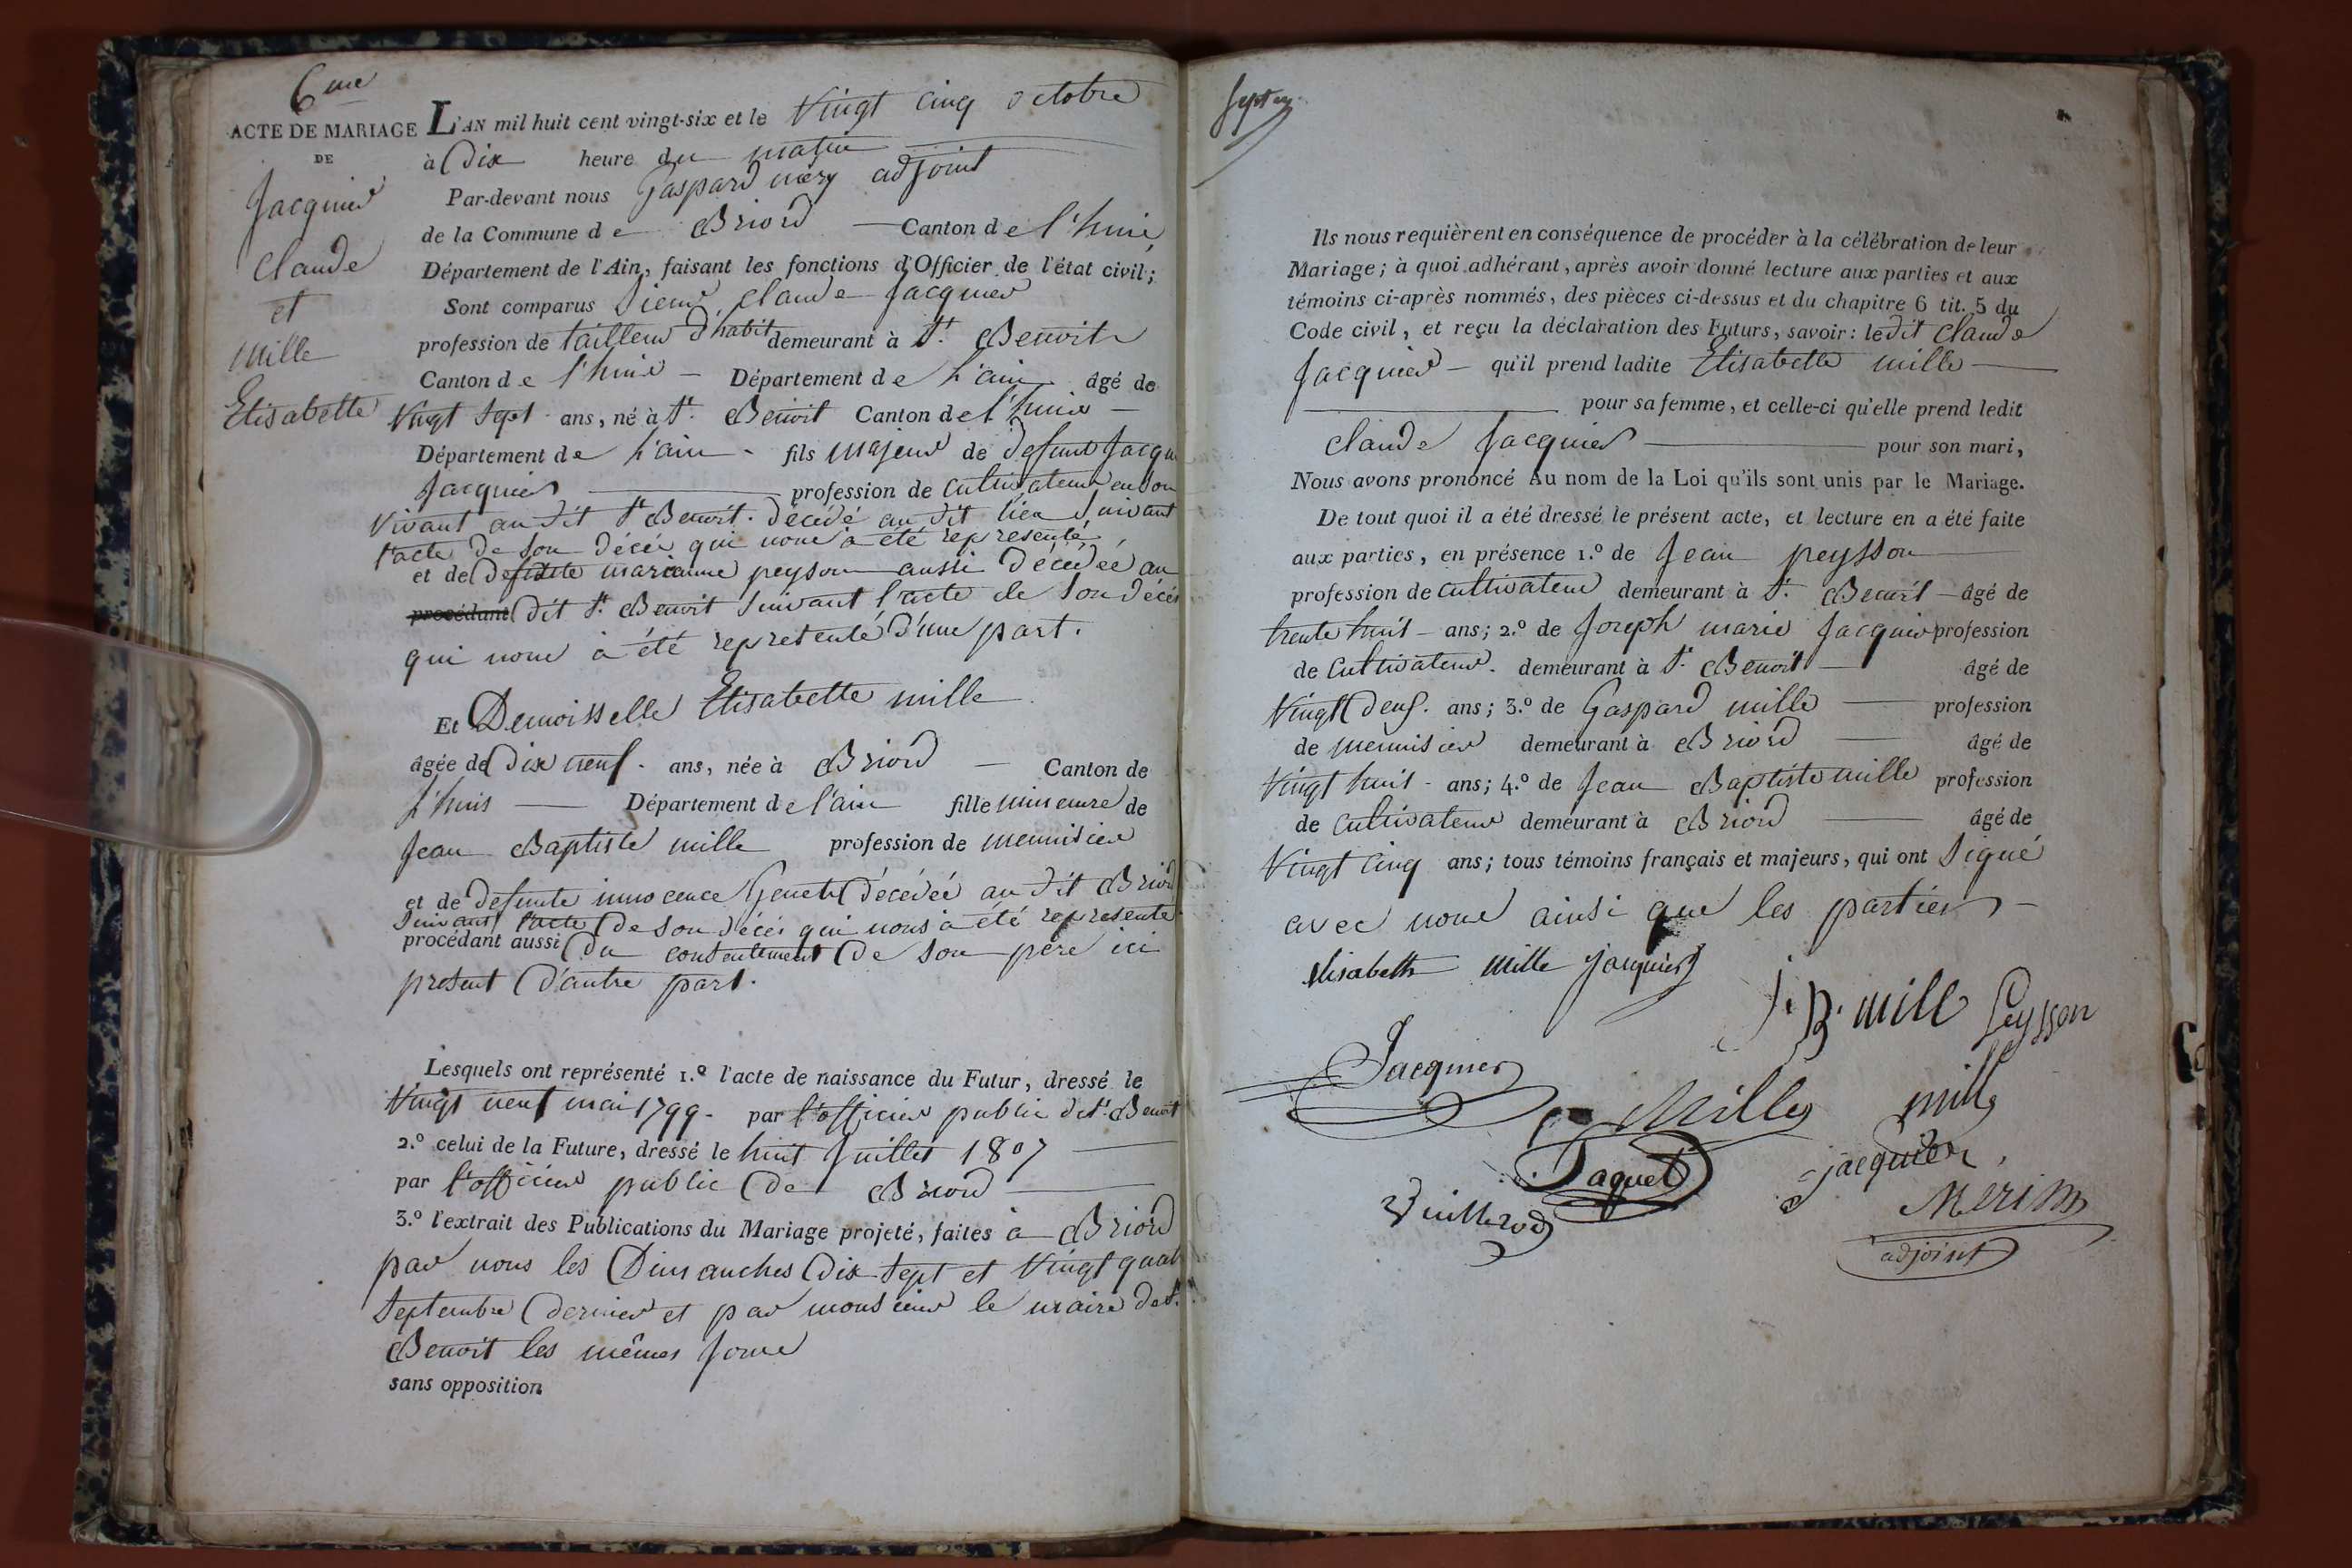 6me
ACTE DE MARIAGE
DE
Jacquier
Claude
et
Mille
Elisabette
L'AN mil huit cent vingt-six et le Vingt cinq octobre
à Dix heure du matin
Par-devant nous Gaspard mery adjoint
de la Commune de Briord Canton de l'huis
Département de l'Ain, faisant les fonctions d'Officier de l'état civil;
Sont comparus Sieur Claude Jacquier
profession de tailleur d'habit demeurant à St. Benoit
Canton de l'huis Département de L'ain âgé de
Vingt sept ans, né à St. Benoit Canton de l'huis
Département de L'ain fils majeur de defunt Jacque
Jacquier profession de cultivateur en son
vivant au dit St Benoit. décédé au dit lieu suivant
l'acte de son décés qui nous à été representé
et de defunte marianne peyson aussi décédée au
procédant dit St. Benoit suivant l'acte de son décés
qui nous à été representé d'une part.
Et Demoisselle Elisabette mille
âgée de Dix neuf ans, née à Briord Canton de
L'huis Département de l'ain fille mineure de
Jean Baptiste mille profession de menuisier
et de defunte innocence Genet décédée au dit Briord
suivant l'acte de son décés qui nous à été representé
procédant aussi du consentement de son père ici
present d'autre part.
Lesquels ont représenté 1.º l'acte de naissance du Futur, dressé le
Vingt neuf mai 1799. par l'officier public de St. Benoit
2.º celui de la Future, dressé le huit Juillet 1807
par l'officier public de Briord
3.º l'extrait des Publications du Mariage projeté, faites à Briord
par nous les Dimanches Dix sept et Vingt quatr
Septembre dernier et par monsieur le maire de St.
Benoit les mêmes Jour
sans opposition
Ils nous requièrent en conséquence de procéder à la célébration de leur
Mariage; à quoi adhérant, après avoir donné lecture aux parties et aux
témoins ci-après nommés, des pièces ci-dessus et du chapitre 6 tit. 5 du
Code civil, et reçu la déclaration des Futurs, savoir: ledit Claude
Jacquier qu'il prend ladite Elisabette mille
pour sa femme, et celle-ci qu'elle prend ledit
Claude Jacquier pour son mari,
Nous avons prononcé Au nom de la Loi qu'ils sont unis par le Mariage.
De tout quoi il a été dressé le présent acte, et lecture en a été faite
aux parties, en présence 1.º de Jean peysson
profession de cultivateur demeurant à St. Benoit âgé de
trente huit ans; 2.º de Joseph marie Jacquier profession
de Cultivateur. demeurant à St. Benoit âgé de
Vingt deuf. ans; 3.º de Gaspard mille profession
de menuisier demeurant à Briord âgé de
Vingt huit ans; 4.º de Jean Baptiste mille profession
de cultivateur demeurant à Briord âgé de
Vingt cinq ans; tous témoins français et majeurs, qui ont Signé
avec nous ainsi que les parties
elisabeth mille jacquier
J. B. mille Peysson
Jacquier
Mille mille
Paquet jacquier
Vuillerod Meri
adjoint